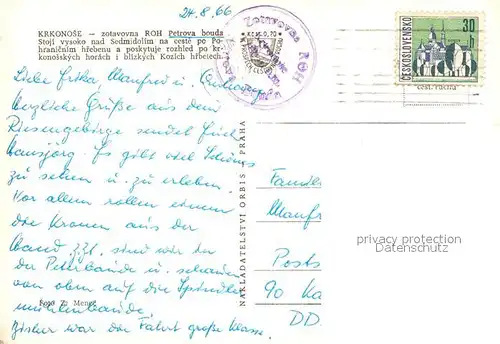 24.8.66
KRKONOŠE — zotavovna ROH Petrova bouda
Stojí vysoko nad Sedmidolím na cestě po Po-
hraničním hřebenu a poskytuje rozhled po kr-
konošských horách i blízkých Kozích hřbetech.
Zotavovna ROH
ČESKOSLOVENSKO
30 h
Liebe Erika, Manfred u.
herzliche Grüße aus dem
Riesengebirge sendet Euch
Hansjörg. Es gibt viel Schönes
zu sehen u. zu erleben.
Vor allem rollen einem
die Kronen aus der
Hand. Zzt. sind wir in
der Peterbaude u. schauen
von oben auf die Spindler-
mühlenbaude.
Bisher war die Fahrt große Klasse.
Foto Z. Menec
NAKLADATELSTVÍ ORBIS PRAHA
Famili
Manfr
Posts
90 Ka
DD
privacy protection
Datenschutz